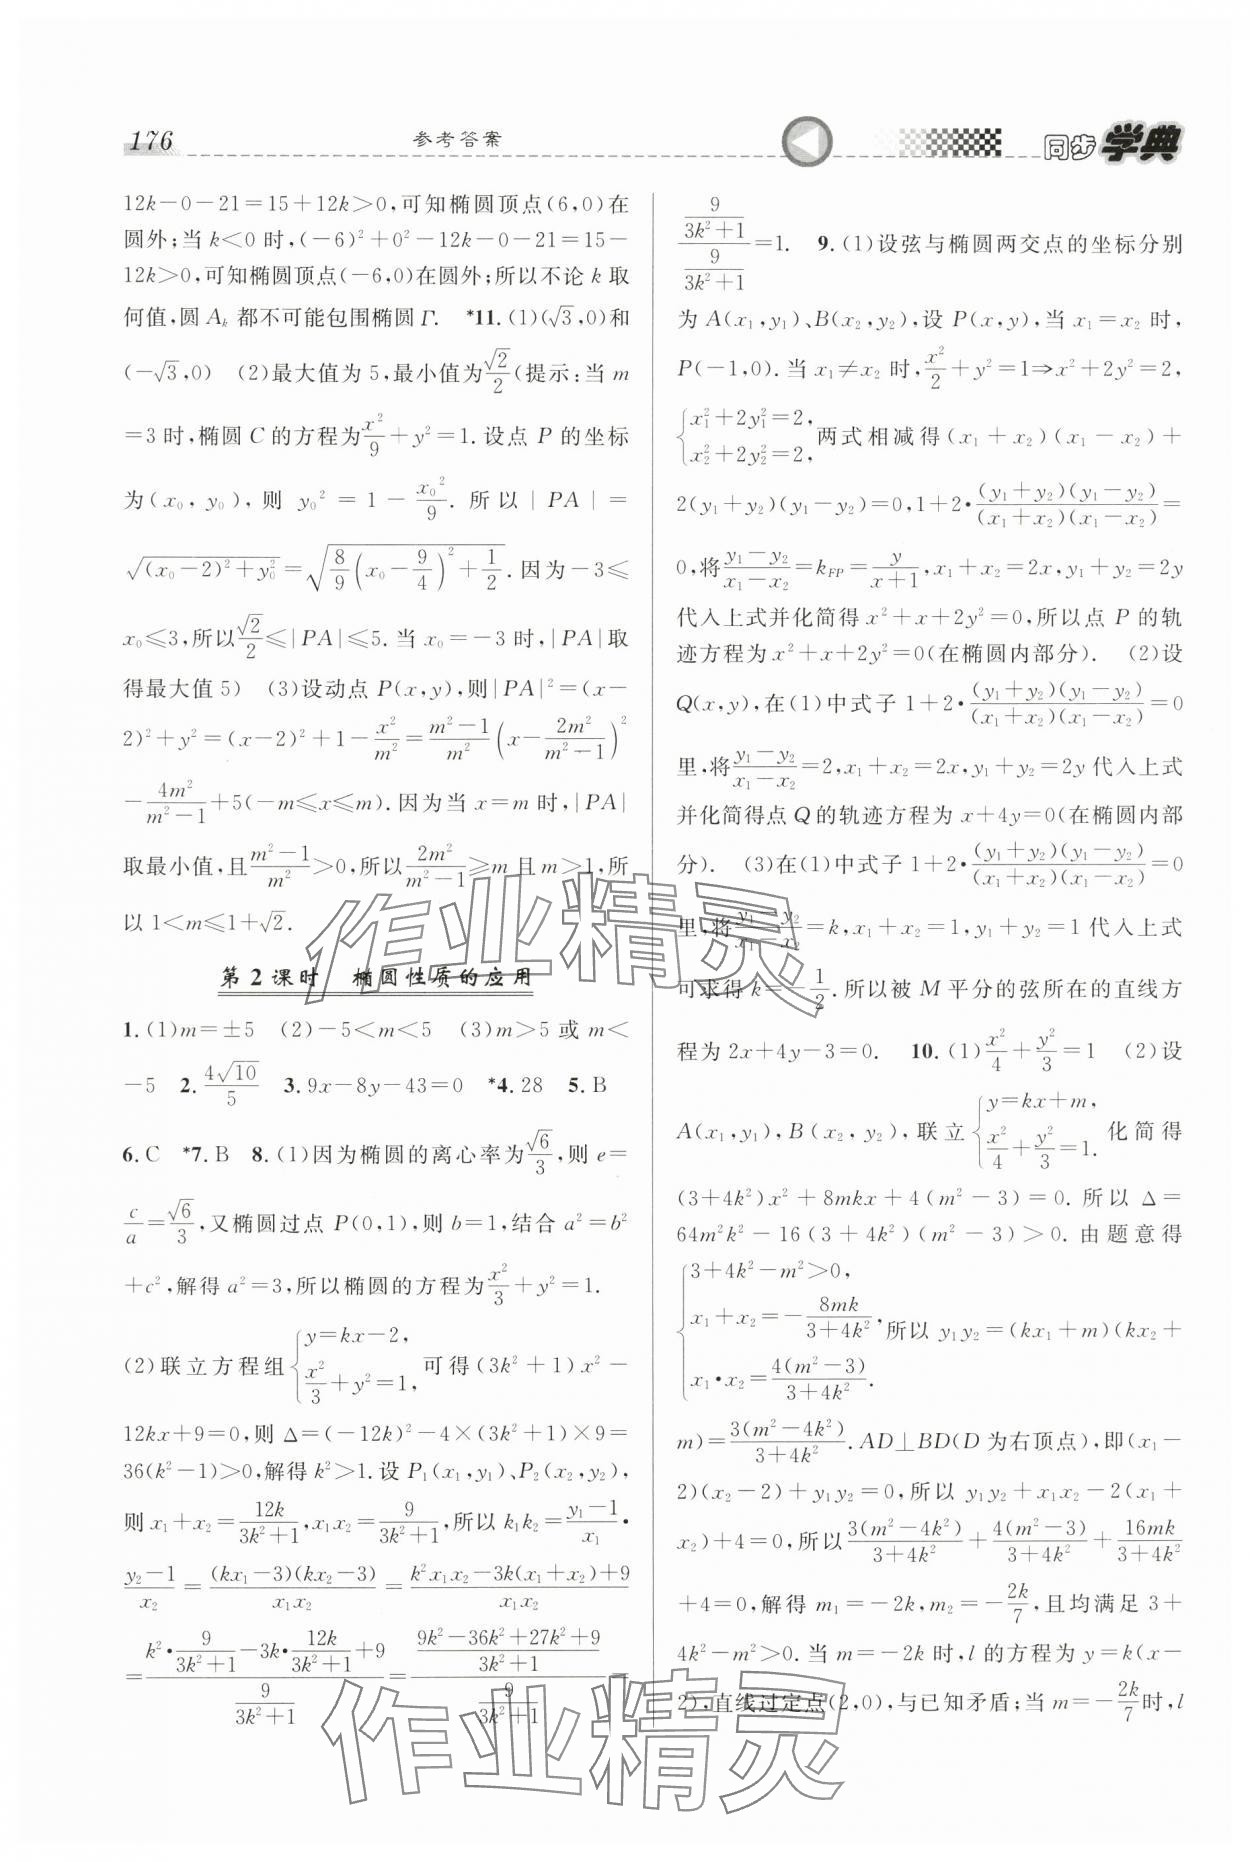 176 参考答案 同步学典
12k－0－21＝15＋12k＞0,可知椭圆顶点(6,0)在
圆外;当 k＜0 时,(－6)²＋0²－12k－0－21＝15－
12k＞0,可知椭圆顶点(－6,0)在圆外;所以不论 k 取
何值,圆 Aₖ 都不可能包围椭圆 Γ. *11.(1)(√3,0)和
(－√3,0) (2)最大值为 5,最小值为√2/2(提示:当 m
＝3 时,椭圆 C 的方程为x²/9＋y²＝1.设点 P 的坐标
为(x₀, y₀),则 y₀²＝1－x₀²/9.所以|PA|＝
√((x₀－2)²＋y₀²)＝√(8/9(x₀－9/4)²＋1/2).因为－3≤
x₀≤3,所以√2/2≤|PA|≤5.当 x₀＝－3 时,|PA|取
得最大值 5) (3)设动点 P(x,y),则|PA|²＝(x－
2)²＋y²＝(x－2)²＋1－x²/m²＝(m²－1)/m²(x－2m²/(m²－1))²
－4m²/(m²－1)＋5(－m≤x≤m).因为当 x＝m 时,|PA|
取最小值,且(m²－1)/m²＞0,所以2m²/(m²－1)≥m且m＞1,所
以 1＜m≤1＋√2.
第 2 课时 椭圆性质的应用
1.(1)m＝±5 (2)－5＜m＜5 (3)m＞5 或 m＜
－5 2. 4√10/5 3. 9x－8y－43＝0 *4. 28 5. B
6. C *7. B 8. (1)因为椭圆的离心率为√6/3,则 e＝
c/a＝√6/3,又椭圆过点 P(0,1),则 b＝1,结合 a²＝b²
＋c²,解得 a²＝3,所以椭圆的方程为x²/3＋y²＝1.
(2)联立方程组{y＝kx－2, x²/3＋y²＝1, 可得(3k²＋1)x²－
12kx＋9＝0,则 Δ＝(－12k)²－4×(3k²＋1)×9＝
36(k²－1)＞0,解得 k²＞1.设 P₁(x₁,y₁)、P₂(x₂,y₂),
则 x₁＋x₂＝12k/(3k²＋1),x₁x₂＝9/(3k²＋1),所以 k₁k₂＝(y₁－1)/x₁•
(y₂－1)/x₂＝(kx₁－3)(kx₂－3)/(x₁x₂)＝(k²x₁x₂－3k(x₁＋x₂)＋9)/(x₁x₂)
＝(k²•9/(3k²＋1)－3k•12k/(3k²＋1)＋9)/(9/(3k²＋1))＝((9k²－36k²＋27k²＋9)/(3k²＋1))/(9/(3k²＋1))＝
(9/(3k²＋1))/(9/(3k²＋1))＝1. 9. (1)设弦与椭圆两交点的坐标分别
为 A(x₁,y₁)、B(x₂,y₂),设 P(x,y),当 x₁＝x₂ 时,
P(－1,0).当 x₁≠x₂ 时,x²/2＋y²＝1⇒x²＋2y²＝2,
{x₁²＋2y₁²＝2, x₂²＋2y₂²＝2, 两式相减得(x₁＋x₂)(x₁－x₂)＋
2(y₁＋y₂)(y₁－y₂)＝0,1＋2•(y₁＋y₂)(y₁－y₂)/((x₁＋x₂)(x₁－x₂))＝
0,将(y₁－y₂)/(x₁－x₂)＝k_FP＝y/(x＋1),x₁＋x₂＝2x,y₁＋y₂＝2y
代入上式并化简得 x²＋x＋2y²＝0,所以点 P 的轨
迹方程为 x²＋x＋2y²＝0(在椭圆内部分). (2)设
Q(x,y),在(1)中式子 1＋2•(y₁＋y₂)(y₁－y₂)/((x₁＋x₂)(x₁－x₂))＝0
里,将(y₁－y₂)/(x₁－x₂)＝2,x₁＋x₂＝2x,y₁＋y₂＝2y 代入上式
并化简得点 Q 的轨迹方程为 x＋4y＝0(在椭圆内部
分). (3)在(1)中式子 1＋2•(y₁＋y₂)(y₁－y₂)/((x₁＋x₂)(x₁－x₂))＝0
里,将(y₁－y₂)/(x₁－x₂)＝k,x₁＋x₂＝1,y₁＋y₂＝1 代入上式
可求得 k＝－1/2.所以被 M 平分的弦所在的直线方
程为 2x＋4y－3＝0. 10. (1)x²/4＋y²/3＝1 (2)设
A(x₁,y₁),B(x₂,y₂),联立{y＝kx＋m, x²/4＋y²/3＝1. 化简得
(3＋4k²)x²＋8mkx＋4(m²－3)＝0.所以 Δ＝
64m²k²－16(3＋4k²)(m²－3)＞0.由题意得
{3＋4k²－m²＞0, x₁＋x₂＝－8mk/(3＋4k²), x₁•x₂＝4(m²－3)/(3＋4k²). 所以 y₁y₂＝(kx₁＋m)(kx₂＋
m)＝3(m²－4k²)/(3＋4k²).AD⊥BD(D 为右顶点),即(x₁－
2)(x₂－2)＋y₁y₂＝0,所以 y₁y₂＋x₁x₂－2(x₁＋
x₂)＋4＝0,所以3(m²－4k²)/(3＋4k²)＋4(m²－3)/(3＋4k²)＋16mk/(3＋4k²)
＋4＝0,解得 m₁＝－2k,m₂＝－2k/7,且均满足 3＋
4k²－m²＞0.当 m＝－2k 时,l 的方程为 y＝k(x－
2),直线过定点(2,0),与已知矛盾;当 m＝－2k/7时,l
作业精灵
作业精灵